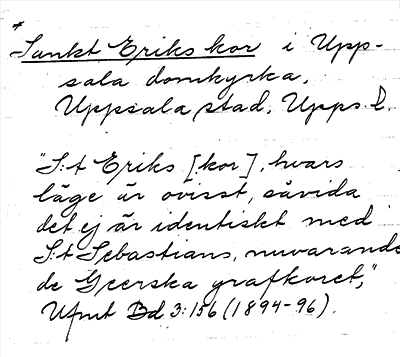 *
Sankt Eriks kor i Upp-
sala domkyrka,
Uppsala stad, Upps. l.
"S:t Eriks [kor], hvars
läge är ovisst, såvida
det ej är identiskt med
S:t Sebastians, nuvarande
de Geerska grafkoret,"
Ufmt Bd 3:156 (1894-96).